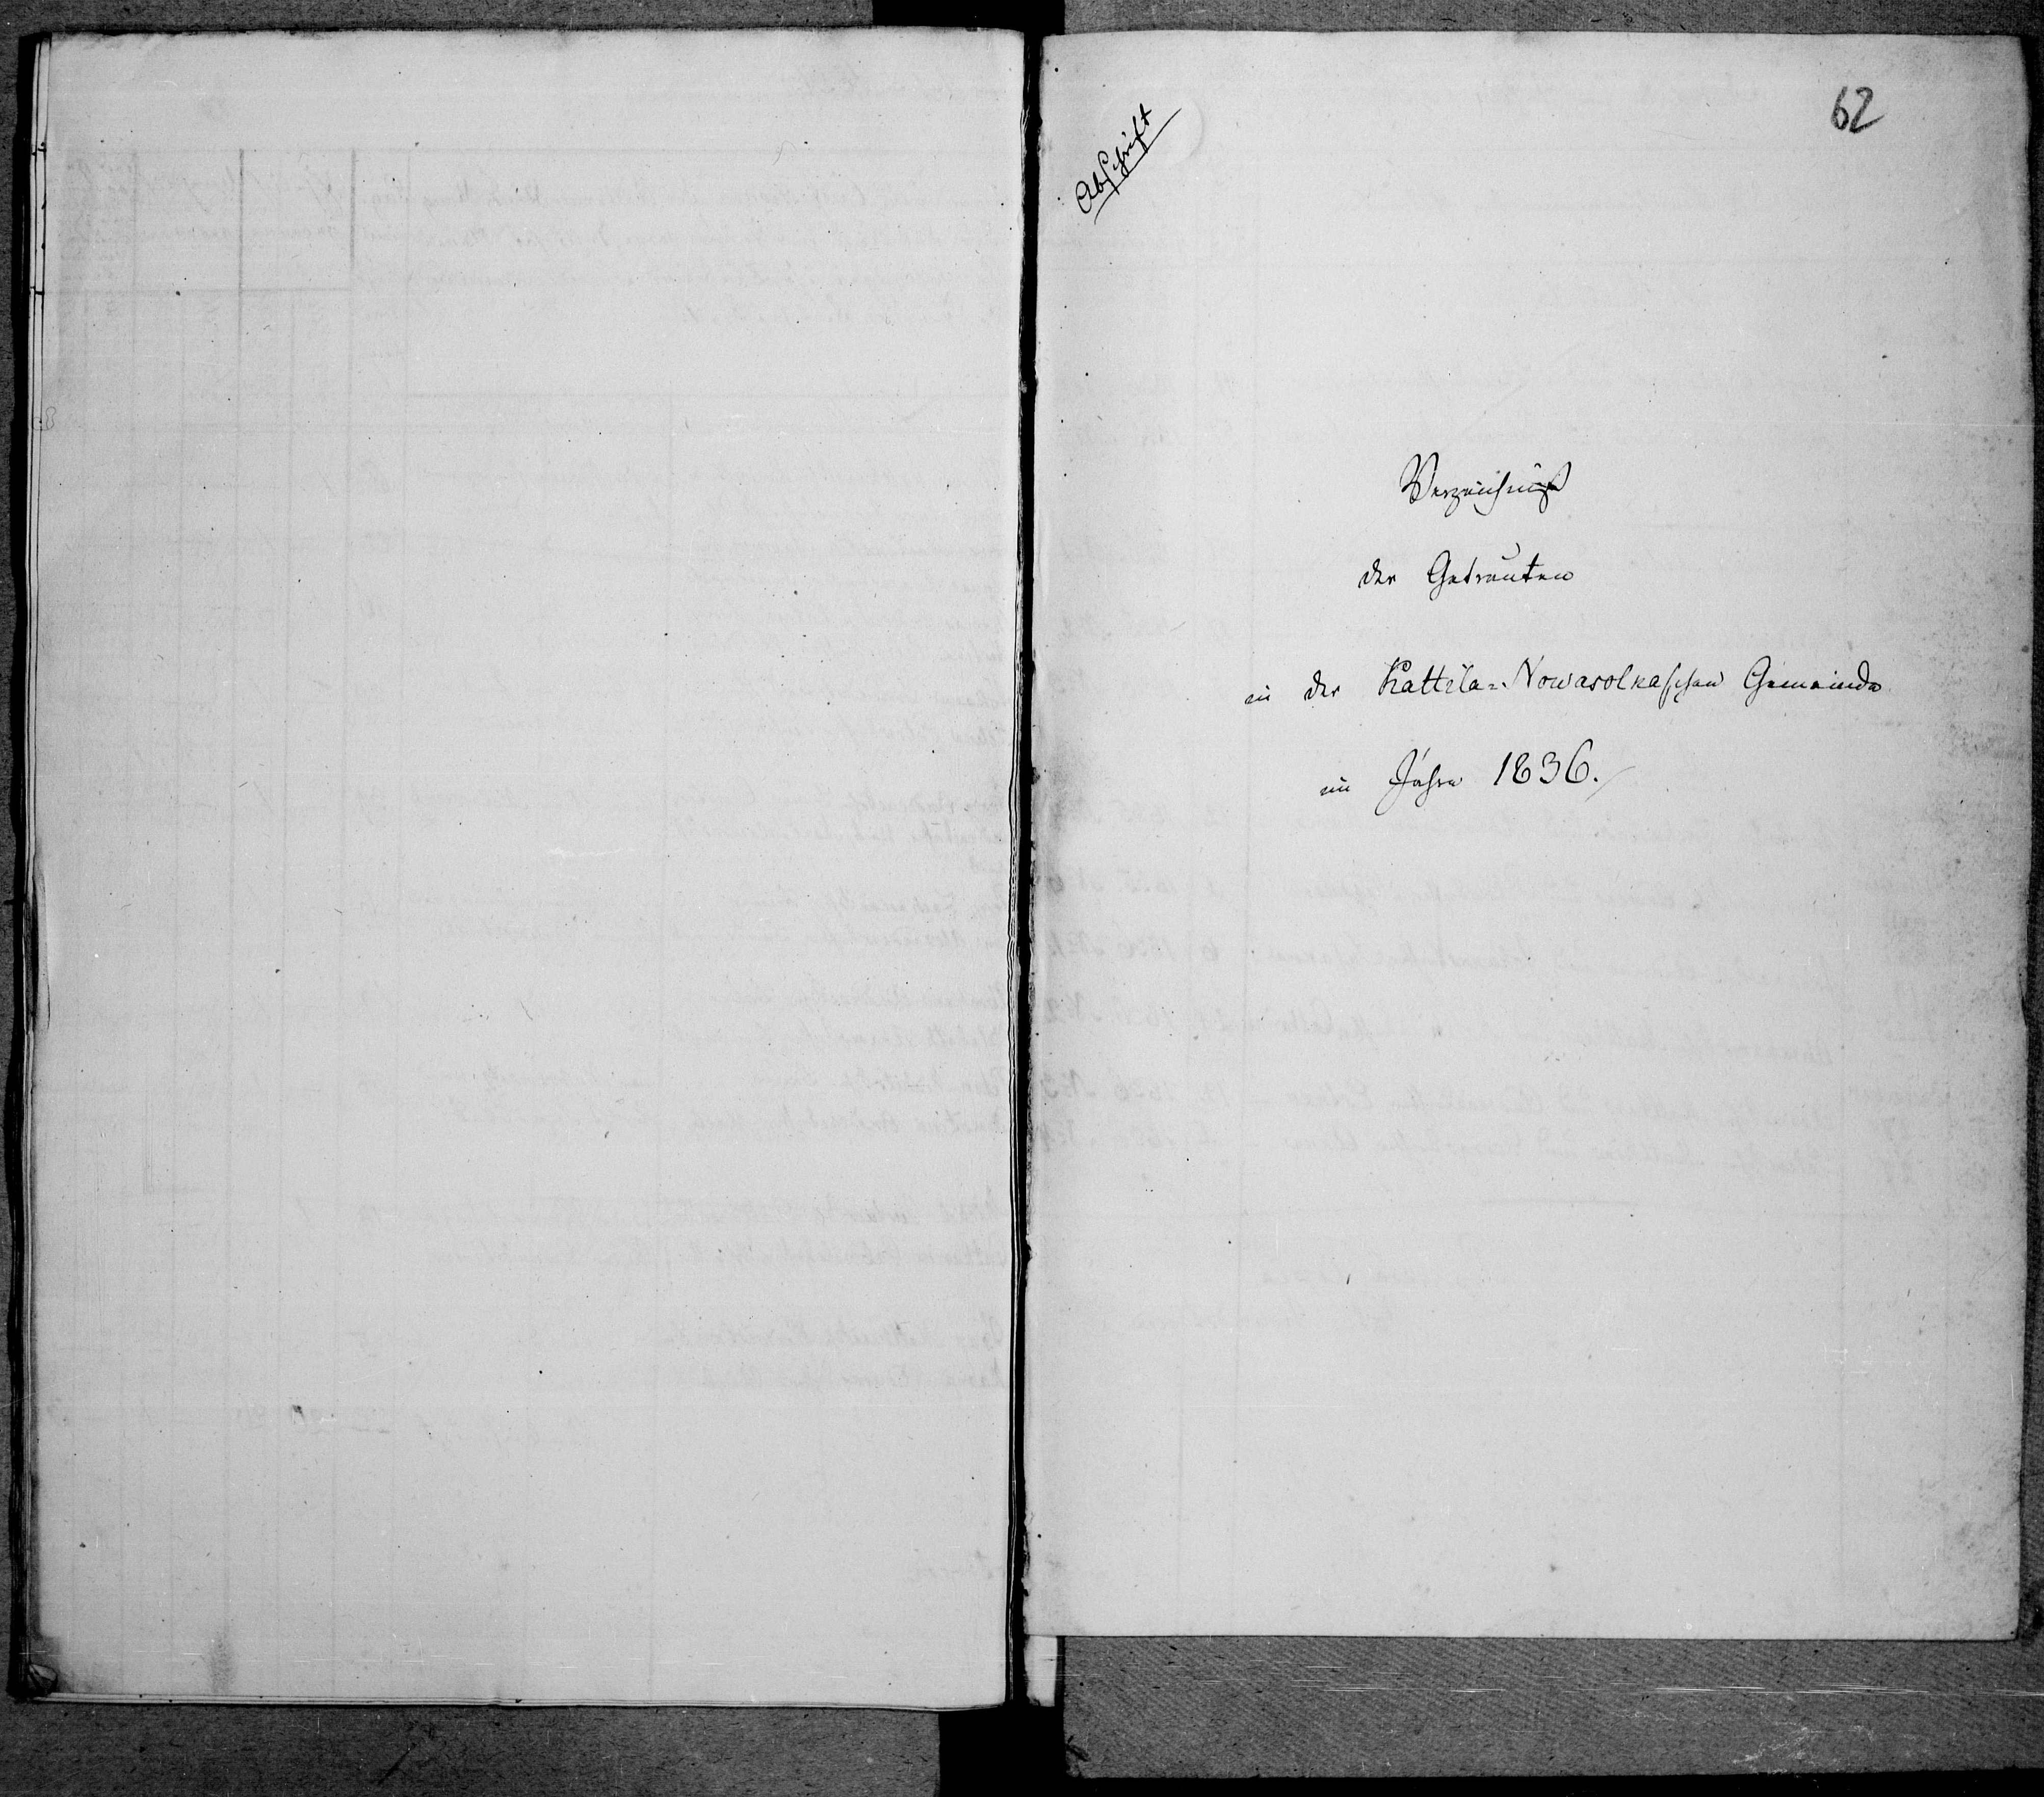 62
Abschrift
Verzeichniß
der Getrauten
in der Kattila=Nowasolkaschen Gemeinde
im Jahre 1836.